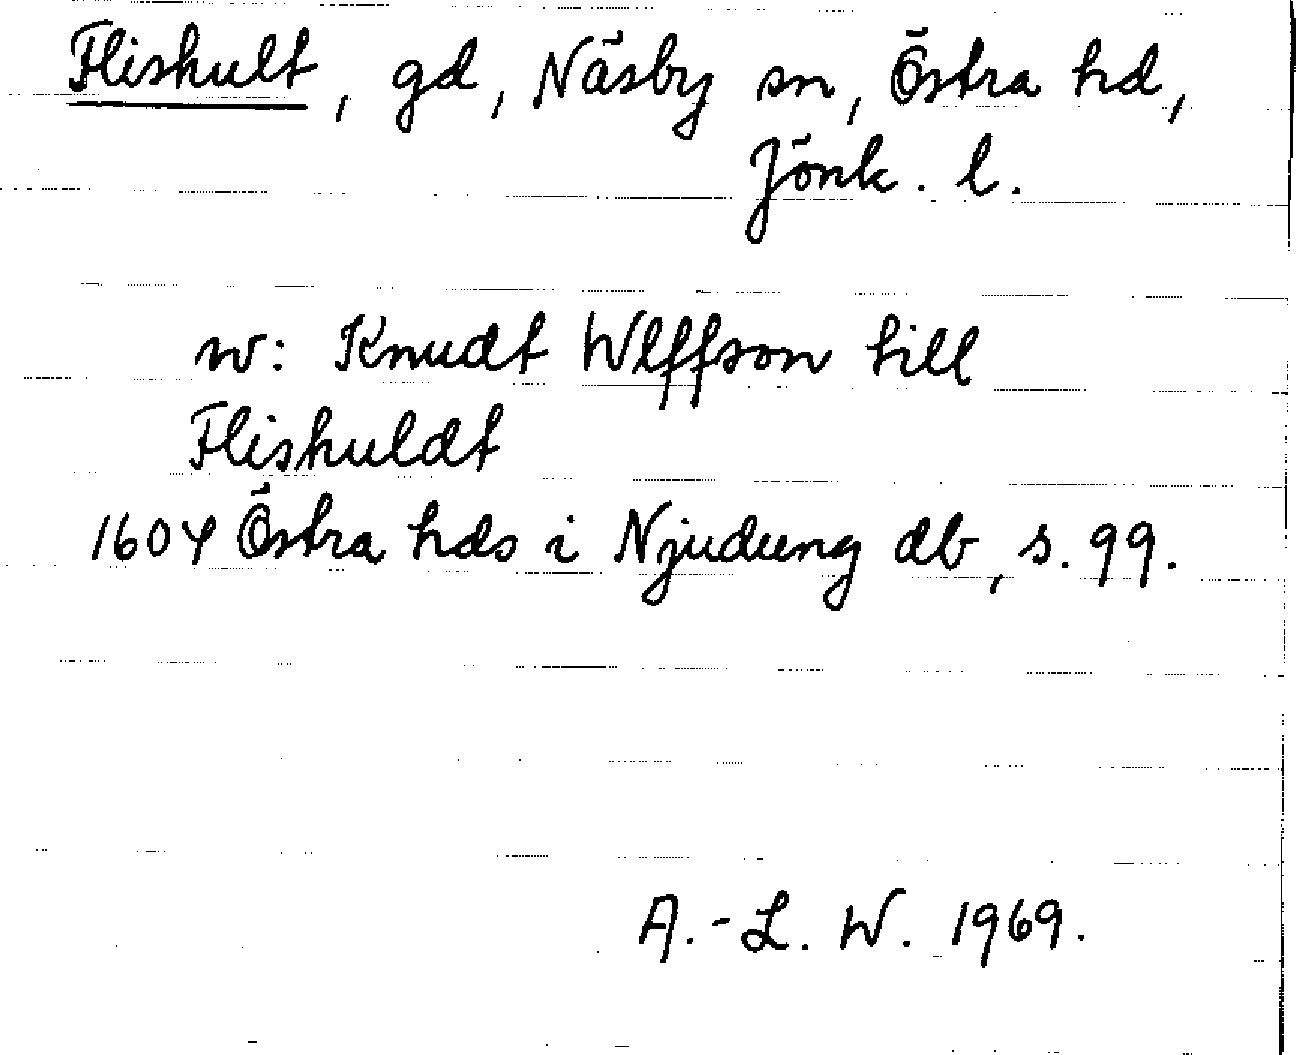 Fliskult, gd, Näsby sn, Östra hd,
Jönk. l.
w: Knudt Wlffson till
Fliskuldt
1604 Östra hds i Njudung db, s. 99.
A.-L. W. 1969.